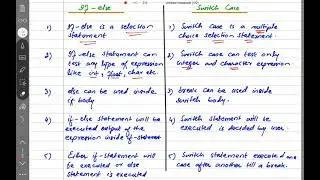 If-else
Switch Case
1) If-else is a selection statement
1) Switch case is a multiple choice selection statement.
2) If-else statement can test any type of expression like int, float, char etc.
2) Switch case can test only integer and character expression
3) else can be used inside if body
3) break can be used inside switch body.
4) if-else statement will be executed output of the expression inside if-statement
4) Switch statement will be executed is decided by user.
5) Either if-statement will be executed or else statement is executed
5) Switch statement executed one case after another till a break.